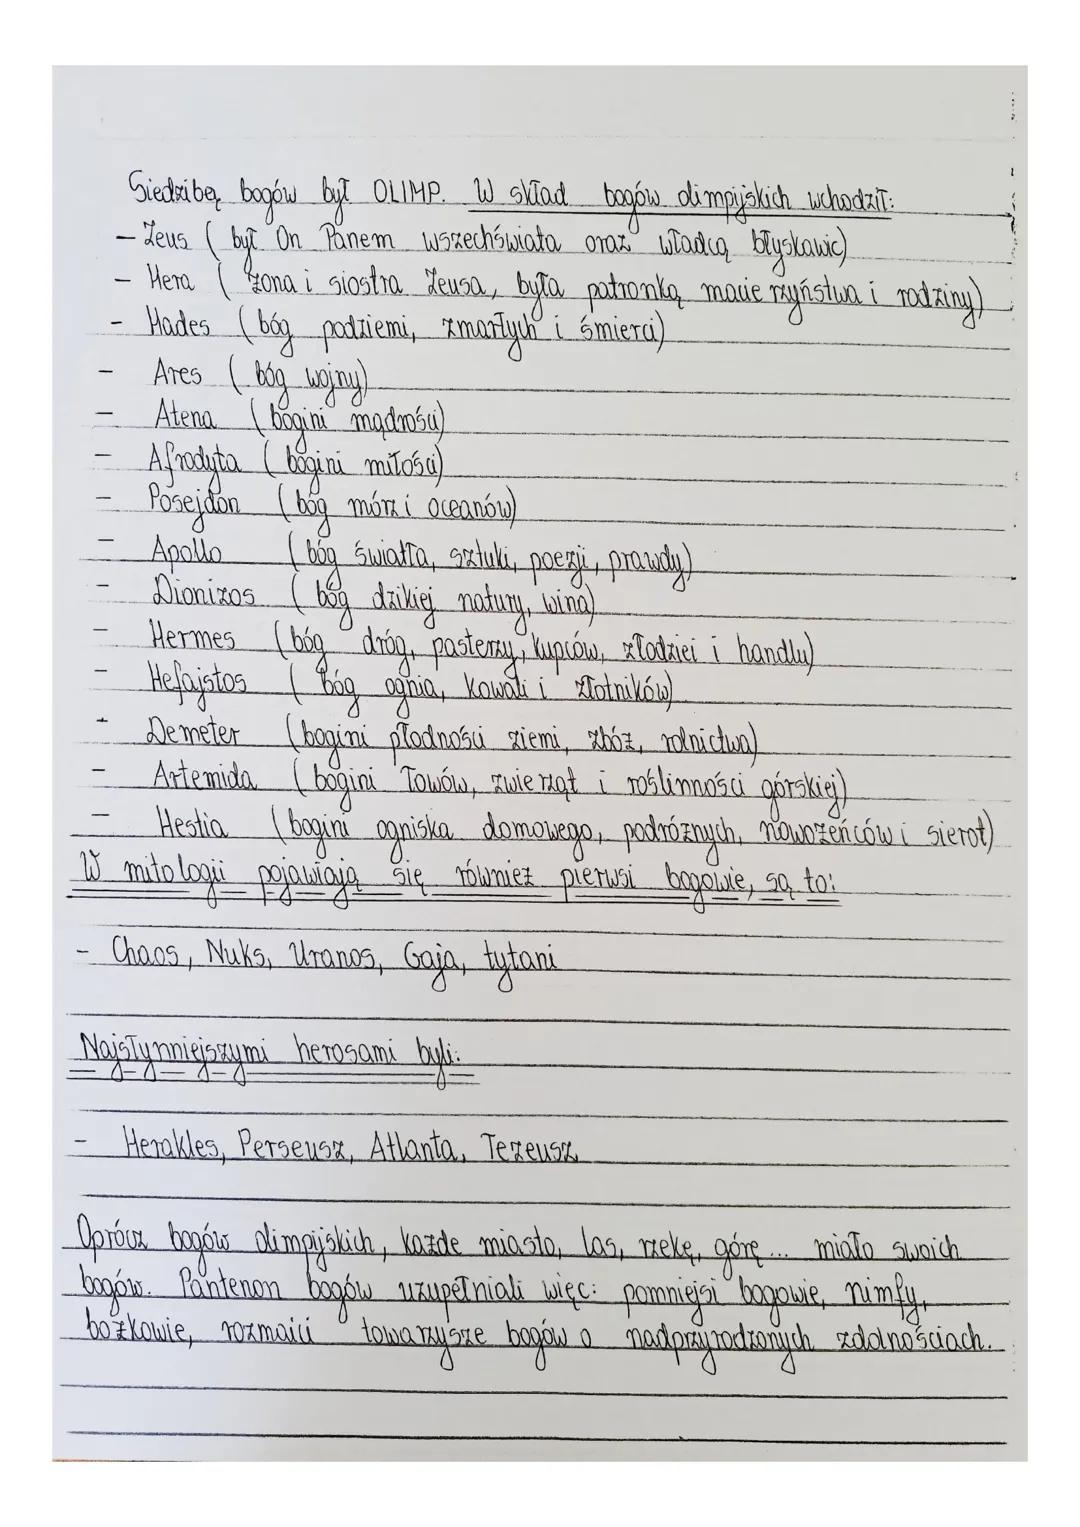 Siedzibą bogów był OLIMP. W skład bogów olimpijskich wchodził:
- Zeus ( był On Panem wszechświata oraz władcą błyskawic)
- Hera ( żona i siostra Zeusa, była patronką macierzyństwa i rodziny)
- Hades (bóg podziemi, zmarłych i śmierci)
- Ares ( bóg wojny)
- Atena ( bogini mądrości)
- Afrodyta ( bogini miłości)
- Posejdon ( bóg mórz i oceanów)
- Apollo ( bóg światła, sztuki, poezji, prawdy)
- Dionizos ( bóg dzikiej natury, wina)
- Hermes (bóg dróg, pasterzy, kupców, złodziei i handlu)
- Hefajstos ( bóg ognia, kowali i złotników)
- Demeter (bogini płodności ziemi, zbóż, rolnictwa)
- Artemida ( bogini łowów, zwierząt i roślinności górskiej)
- Hestia (bogini ogniska domowego, podróżnych, nowożeńców i sierot)
W mitologii pojawiają się również pierwsi bogowie, są to:
- Chaos, Nuks, Uranos, Gaja, tytani
Najsłynniejszymi herosami byli:
- Herakles, Perseusz, Atlanta, Tezeusz
Oprócz bogów olimpijskich, każde miasto, las, rzekę, górę ... miało swoich
bogów. Pantenon bogów uzupełniali więc: pomniejsi bogowie, nimfy,
bożkowie, rozmaici towarzysze bogów o nadprzyrodzonych zdolnościach.